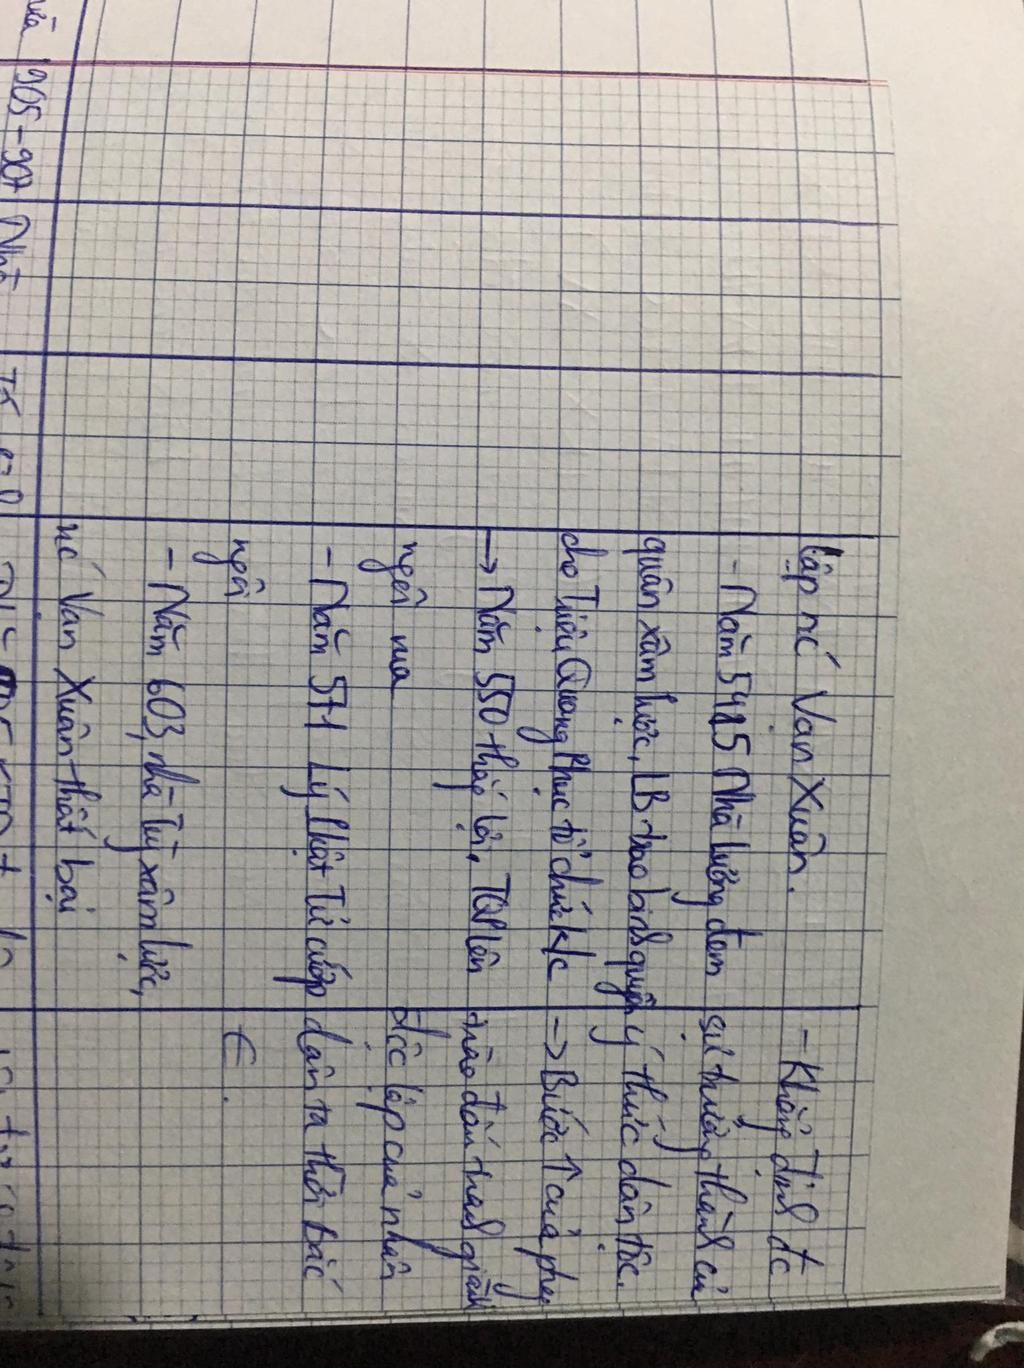 lập nc Vạn Xuân.
- Năm 545 Nhà Lương đem
quân xâm lược, LB trao binh quyền
cho Triệu Quang Phục tổ chức k/c
→ Năm 550 thắng lợi, TQP lên
ngôi vua
- Năm 571 Lý Phật Tử cướp
ngôi
- Năm 603, nhà Tuỳ xâm lược,
nc Vạn Xuân thất bại
- Khẳng định đc
sự trưởng thành của
ý thức dân tộc.
→ Bước ↑ của
trào đấu tranh giành
độc lập của nhân
dân ta thời Bắc
€.
905-907 Nhà